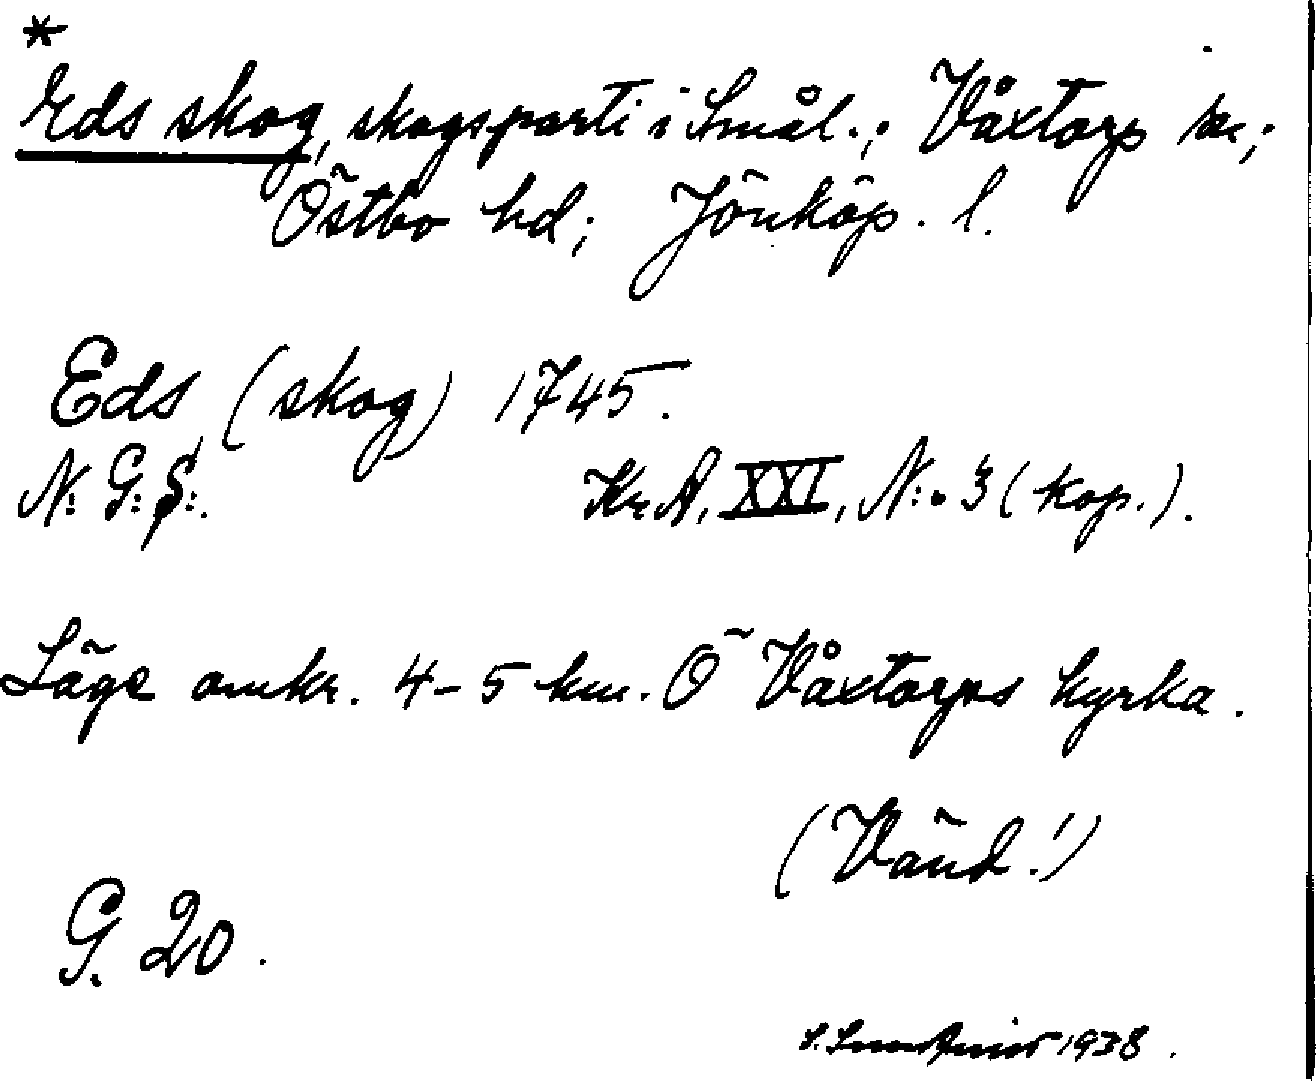 *
Eds skog, skogsparti i Smål.; Våxtorp sn;
Östbo hd; Jönköp. l.
Eds (skog) 1745.
N: G: S:.
Kr. A, XXI, N:o 3 (kop.).
Läge omkr. 4-5 km. Ö Våxtorps kyrka.
(Vänd!)
G. 20.
1938.